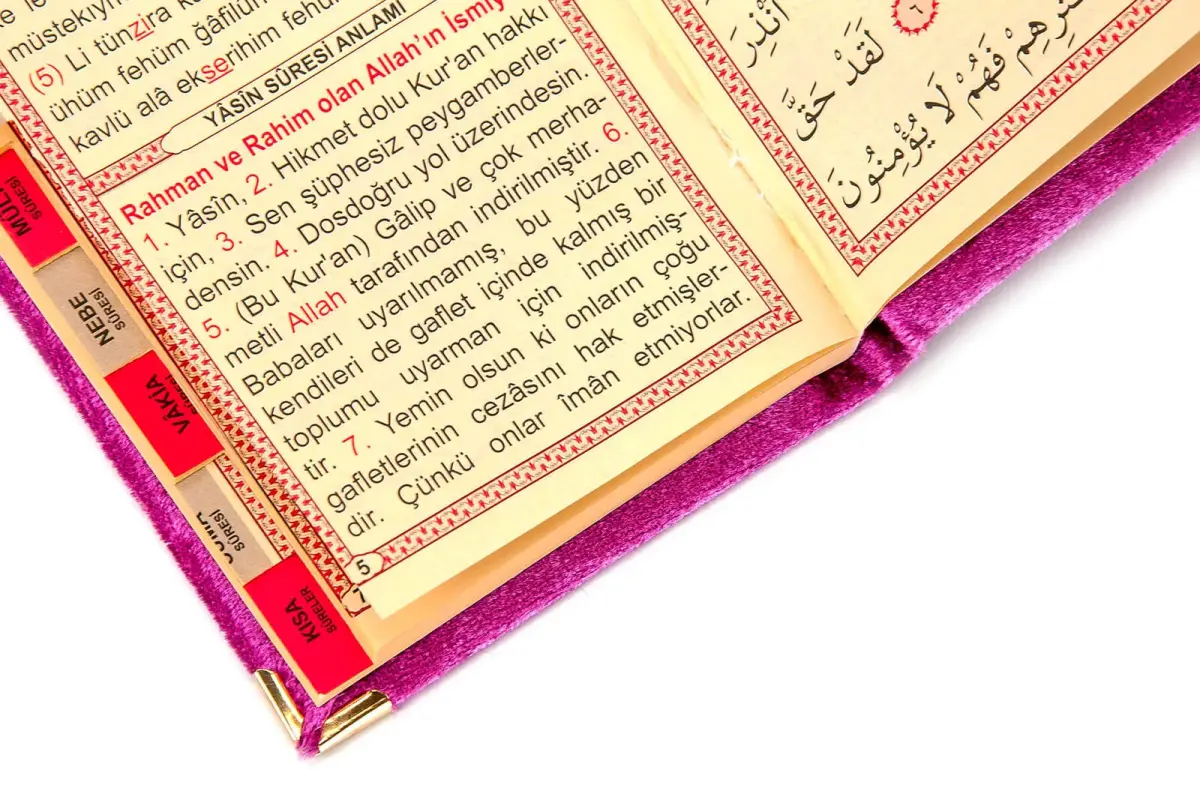 müstekıym
(5) Li tünzira
ühüm fehüm ğafilûn
kavlü alâ ekserihim fehüm
YÂSÎN SÛRESİ ANLAMI
Rahman ve Rahim olan Allah'ın İsmiy
1. Yâsîn, 2. Hikmet dolu Kur'an hakkı
için, 3. Sen şüphesiz peygamberler-
densin. 4. Dosdoğru yol üzerindesin.
5. (Bu Kur'an) Gâlip ve çok merha-
metli Allah tarafından indirilmiştir. 6.
Babaları uyarılmamış, bu yüzden
kendileri de gaflet içinde kalmış bir
toplumu uyarman için indirilmiş-
tir. 7. Yemin olsun ki onların çoğu
gafletlerinin cezâsını hak etmişler-
dir. Çünkü onlar îmân etmiyorlar.
5
MÜL
SÛRESİ
NEBE
SÛRESİ
VÂKIA
SÛRESİ
KISA
SÛRELER
أُنْذِرَ
٦
لَقَدْ حَقَّ
فَهُمْ لَا يُؤْمِنُونَ